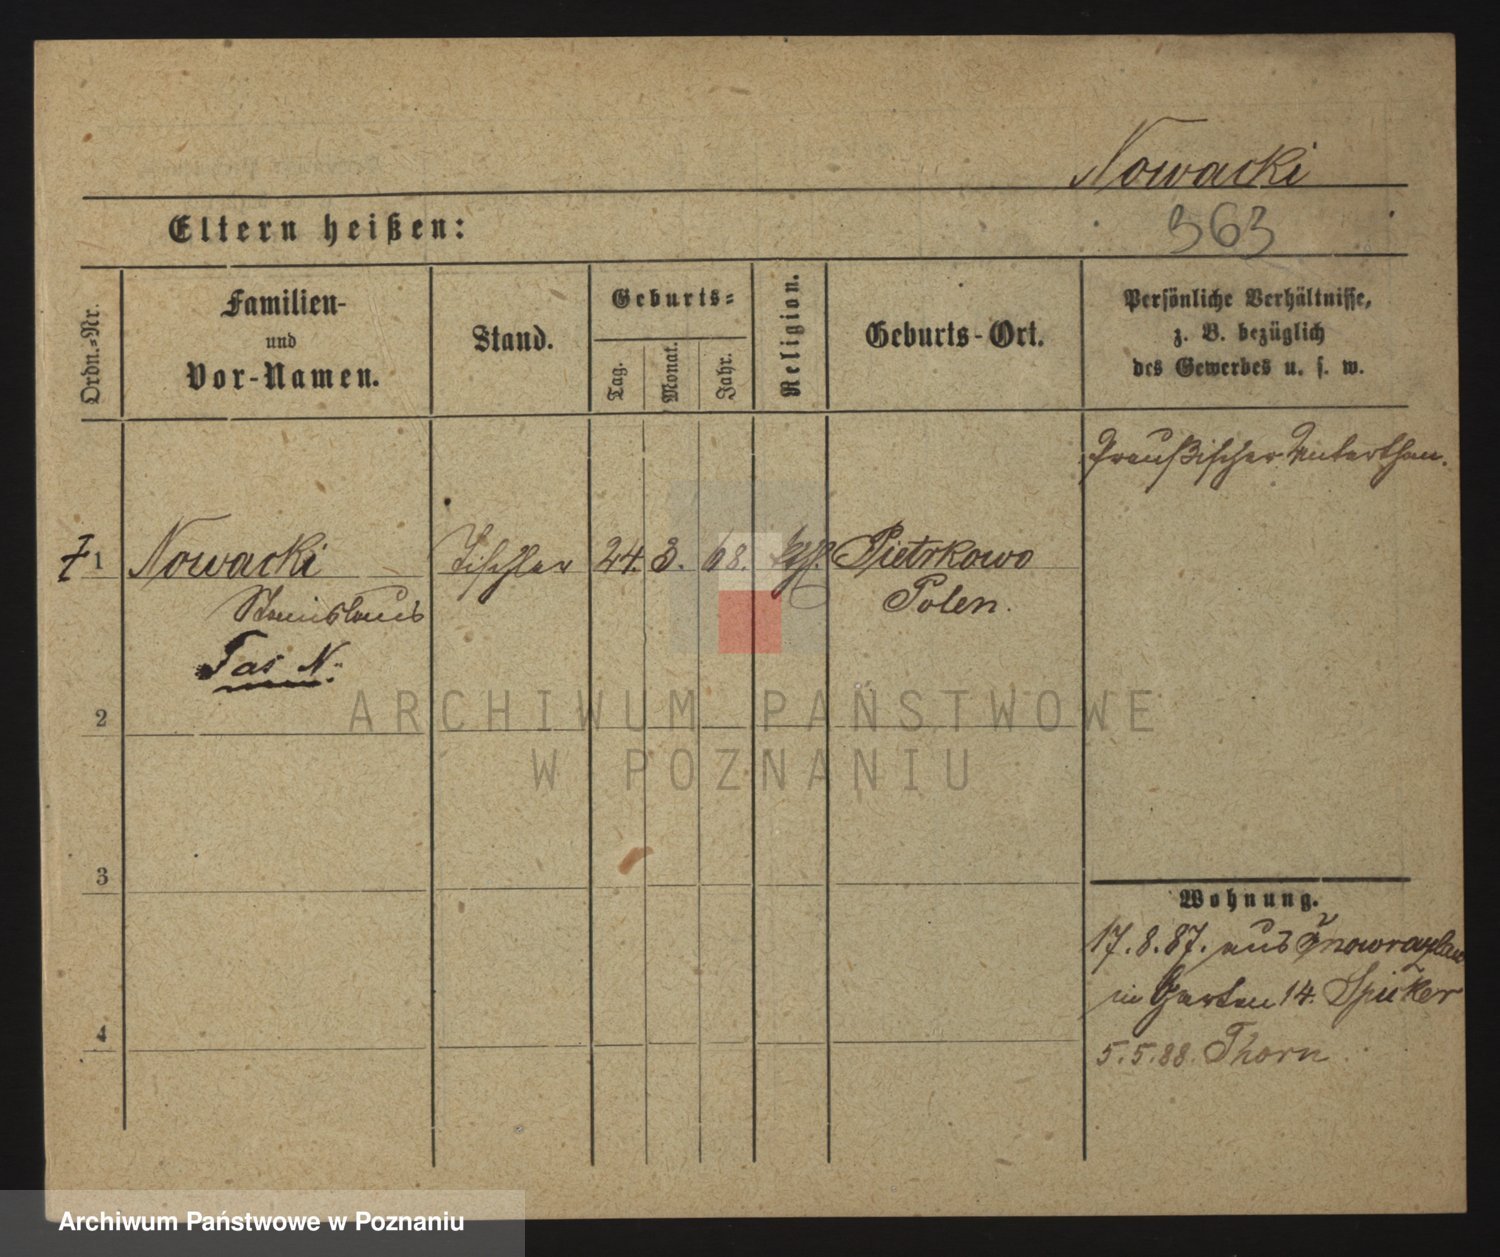 Nowacki
Eltern heißen:
363
Ordn.=Nr.
Familien-
und
Vor-Namen.
Stand.
Geburts=
Tag.
Monat.
Jahr.
Religion.
Geburts-Ort.
Persönliche Verhältnisse,
z. B. bezüglich
des Gewerbes u. s. w.
Preußischer Unterthan.
1 Nowacki Tischler 24. 3. 68. Pietrkowo
Stanislaus Polen.
N.
2
3
4
Wohnung.
17.8.87. aus Inowrazlaw
in Garten 14.
5.5.88. Thorn
ARCHIWUM PAŃSTWOWE
W POZNANIU
Archiwum Państwowe w Poznaniu